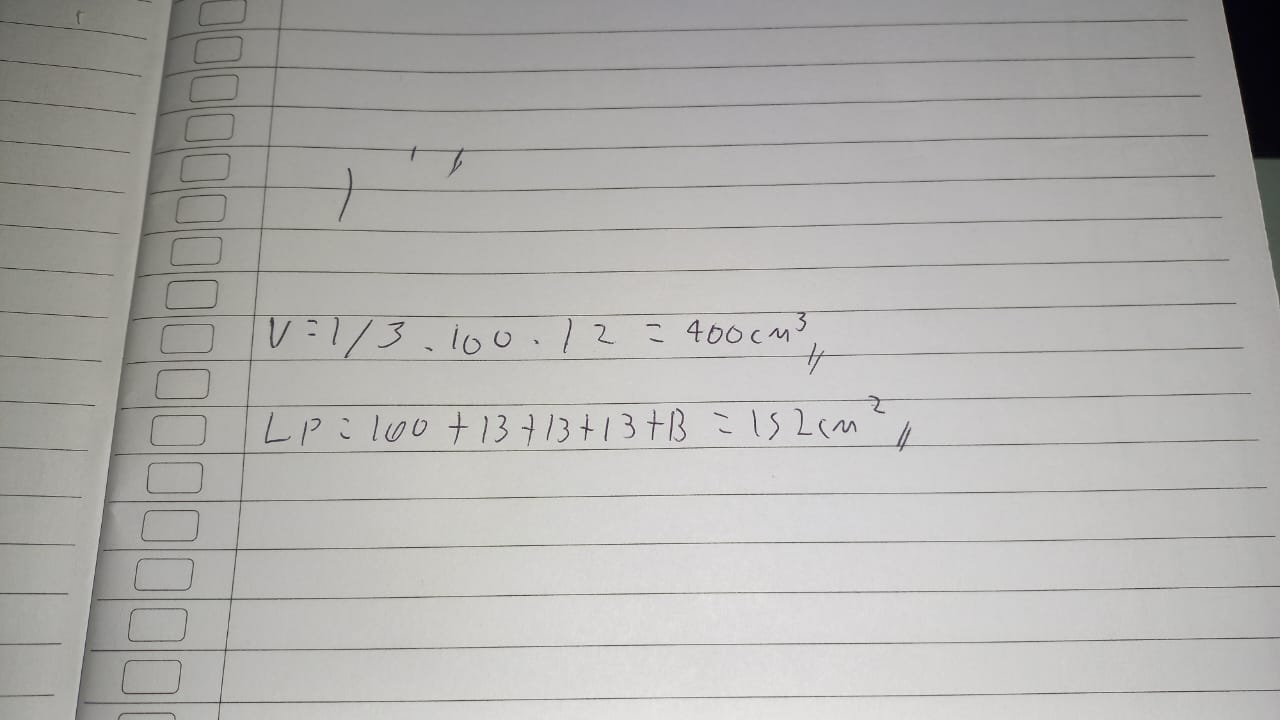 V = 1/3 . 100 . 12 = 400 cm³
LP = 100 + 13 + 13 + 13 + 13 = 152 cm²